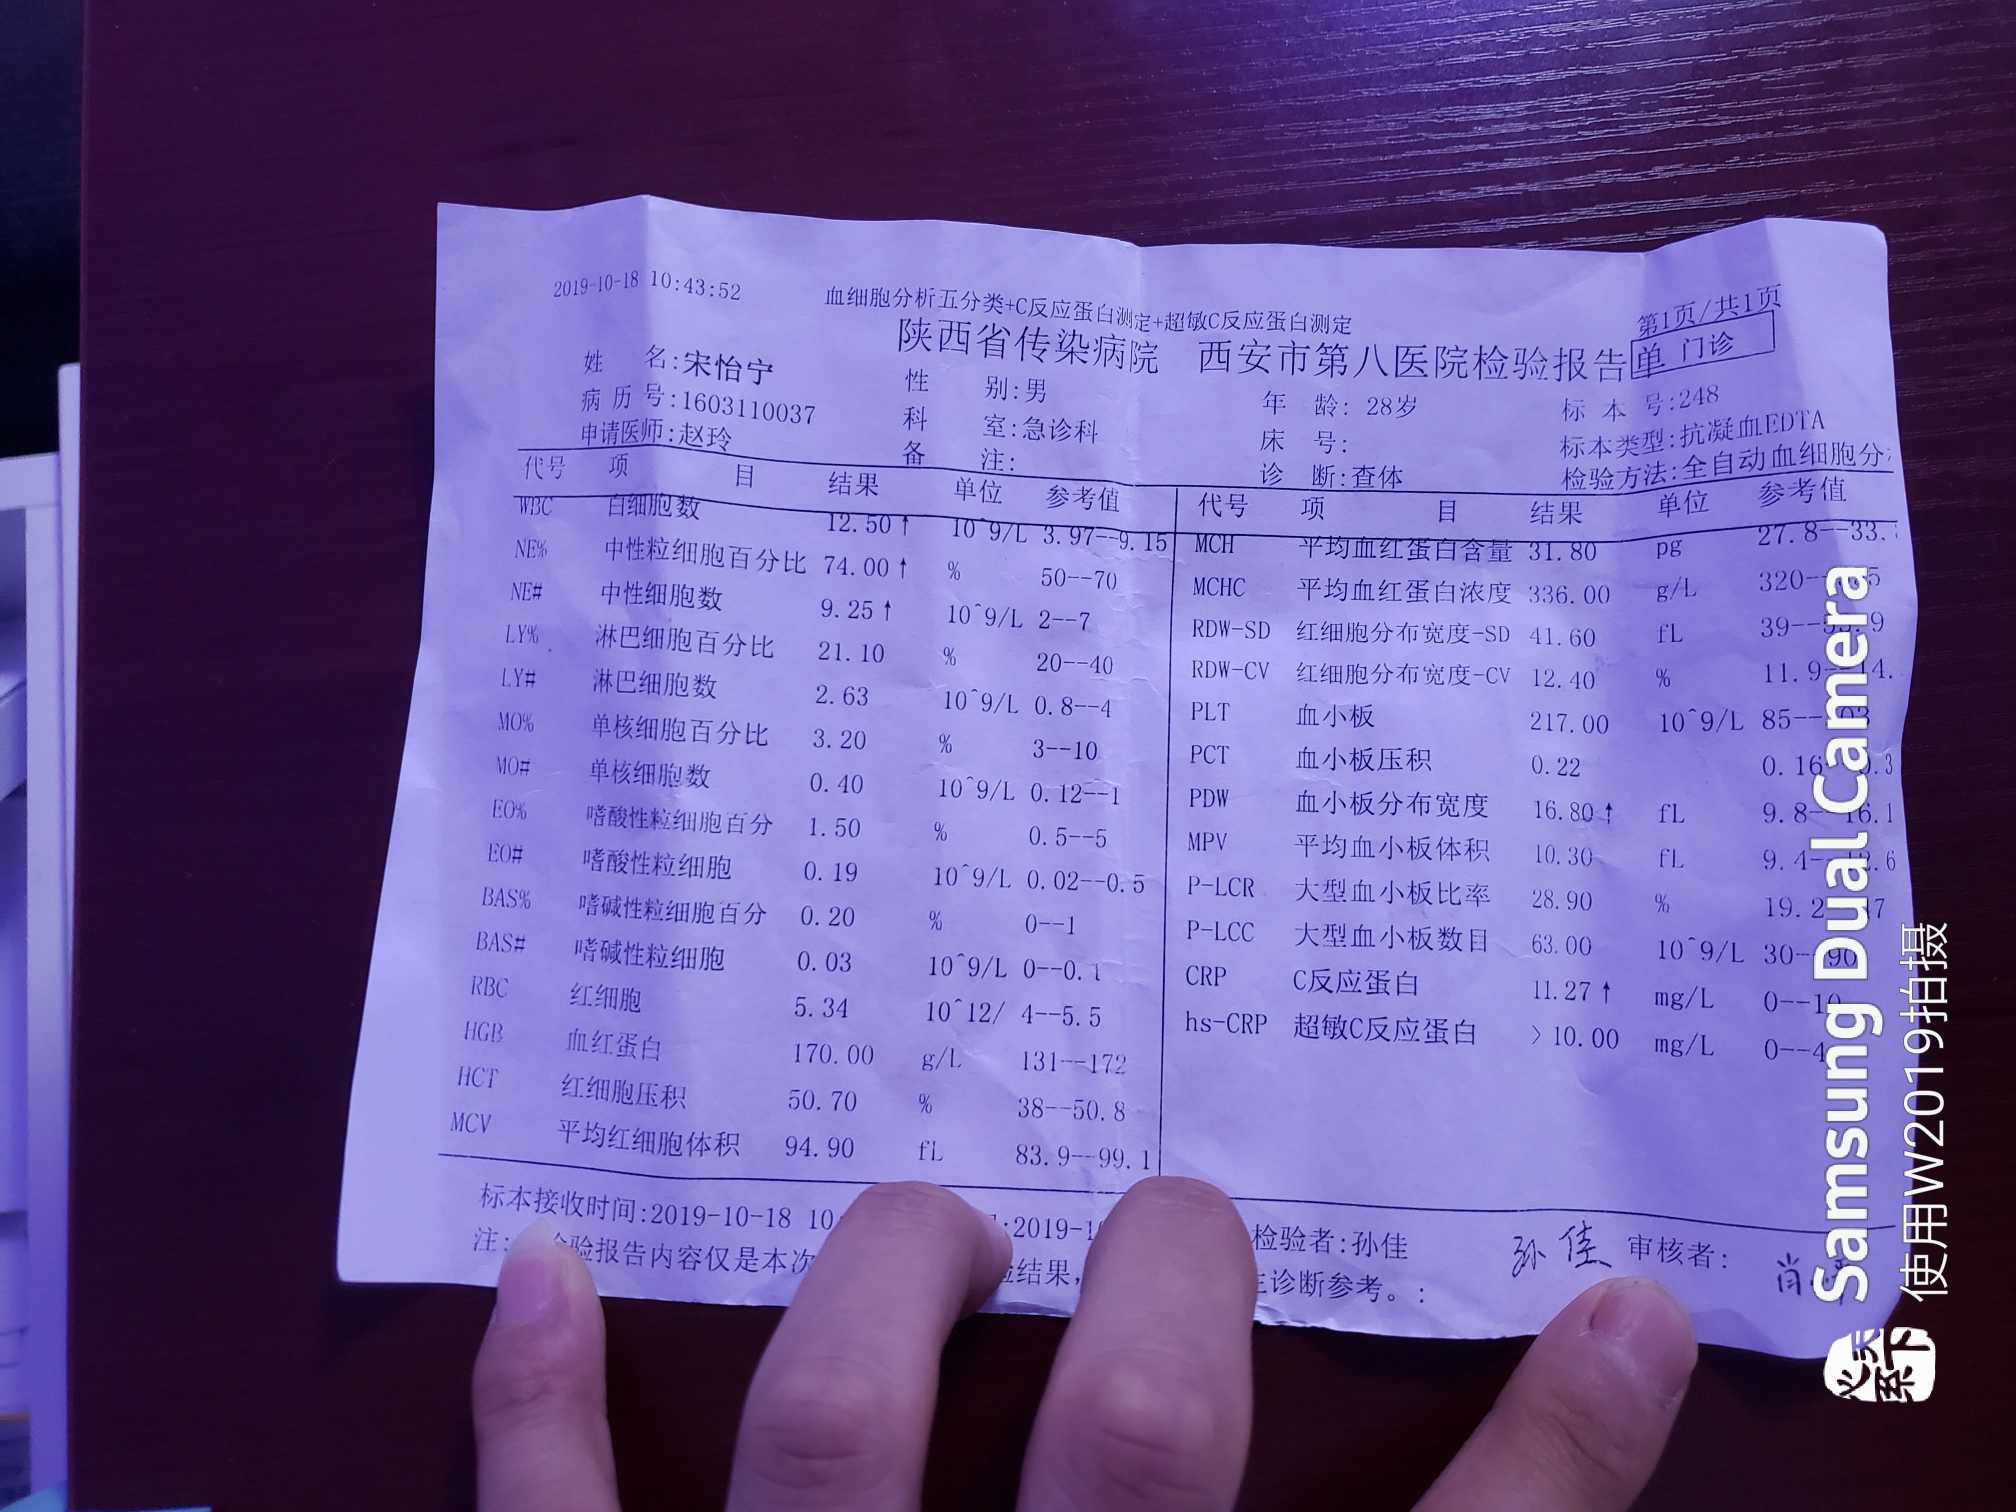 2019-10-18 10:43:52 血细胞分析五分类+C反应蛋白测定+超敏C反应蛋白测定 第1页/共1页
陕西省传染病院 西安市第八医院检验报告单 门诊
姓 名:宋怡宁 性 别:男 年 龄: 28岁 标 本 号:248
病 历 号:1603110037 科 室:急诊科 床 号: 标本类型:抗凝血EDTA
申请医师:赵玲 备 注: 诊 断:查体 检验方法:全自动血细胞分
代号 项 目 结果 单位 参考值
WBC 白细胞数 12.50↑ 10^9/L 3.97--9.15
NE% 中性粒细胞百分比 74.00↑ % 50--70
NE# 中性细胞数 9.25↑ 10^9/L 2--7
LY% 淋巴细胞百分比 21.10 % 20--40
LY# 淋巴细胞数 2.63 10^9/L 0.8--4
MO% 单核细胞百分比 3.20 % 3--10
MO# 单核细胞数 0.40 10^9/L 0.12--1
EO% 嗜酸性粒细胞百分 1.50 % 0.5--5
EO# 嗜酸性粒细胞 0.19 10^9/L 0.02--0.5
BAS% 嗜碱性粒细胞百分 0.20 % 0--1
BAS# 嗜碱性粒细胞 0.03 10^9/L 0--0.1
RBC 红细胞 5.34 10^12/ 4--5.5
HGB 血红蛋白 170.00 g/L 131--172
HCT 红细胞压积 50.70 % 38--50.8
MCV 平均红细胞体积 94.90 fL 83.9--99.1
代号 项 目 结果 单位 参考值
MCH 平均血红蛋白含量 31.80 pg 27.8--33.
MCHC 平均血红蛋白浓度 336.00 g/L 320--
RDW-SD 红细胞分布宽度-SD 41.60 fL 39--
RDW-CV 红细胞分布宽度-CV 12.40 % 11.9--14.
PLT 血小板 217.00 10^9/L 85--
PCT 血小板压积 0.22 0.16
PDW 血小板分布宽度 16.80↑ fL 9.8--16.1
MPV 平均血小板体积 10.30 fL 9.4--
P-LCR 大型血小板比率 28.90 % 19.2
P-LCC 大型血小板数目 63.00 10^9/L 30--90
CRP C反应蛋白 11.27↑ mg/L 0--10
hs-CRP 超敏C反应蛋白 >10.00 mg/L 0--4
标本接收时间:2019-10-18 10 :2019-1 检验者:孙佳 孙佳 审核者: 肖
注: 验报告内容仅是本次 结果, 诊断参考。:
Samsung Dual Camera
使用W2019拍摄
心系天下